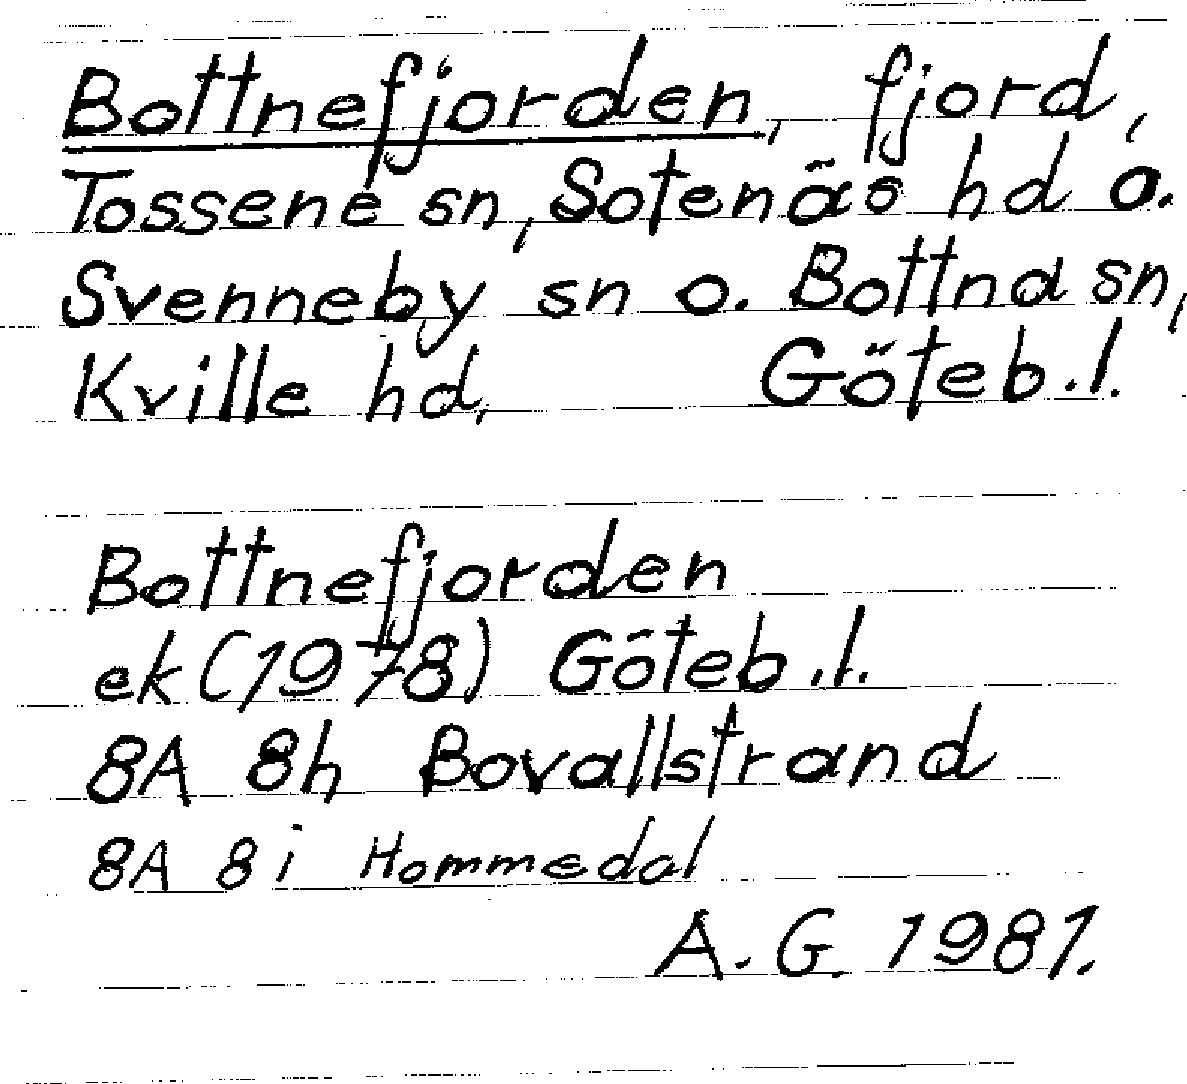 Bottnefjorden, fjord,
Tossene sn, Sotenäs hd o.
Svenneby sn o. Bottna sn,
Kville hd, Göteb.l.
Bottnefjorden
ek (1978) Göteb.l.
8A 8h Bovallstrand
8A 8i Hommedal
A.G. 1981.